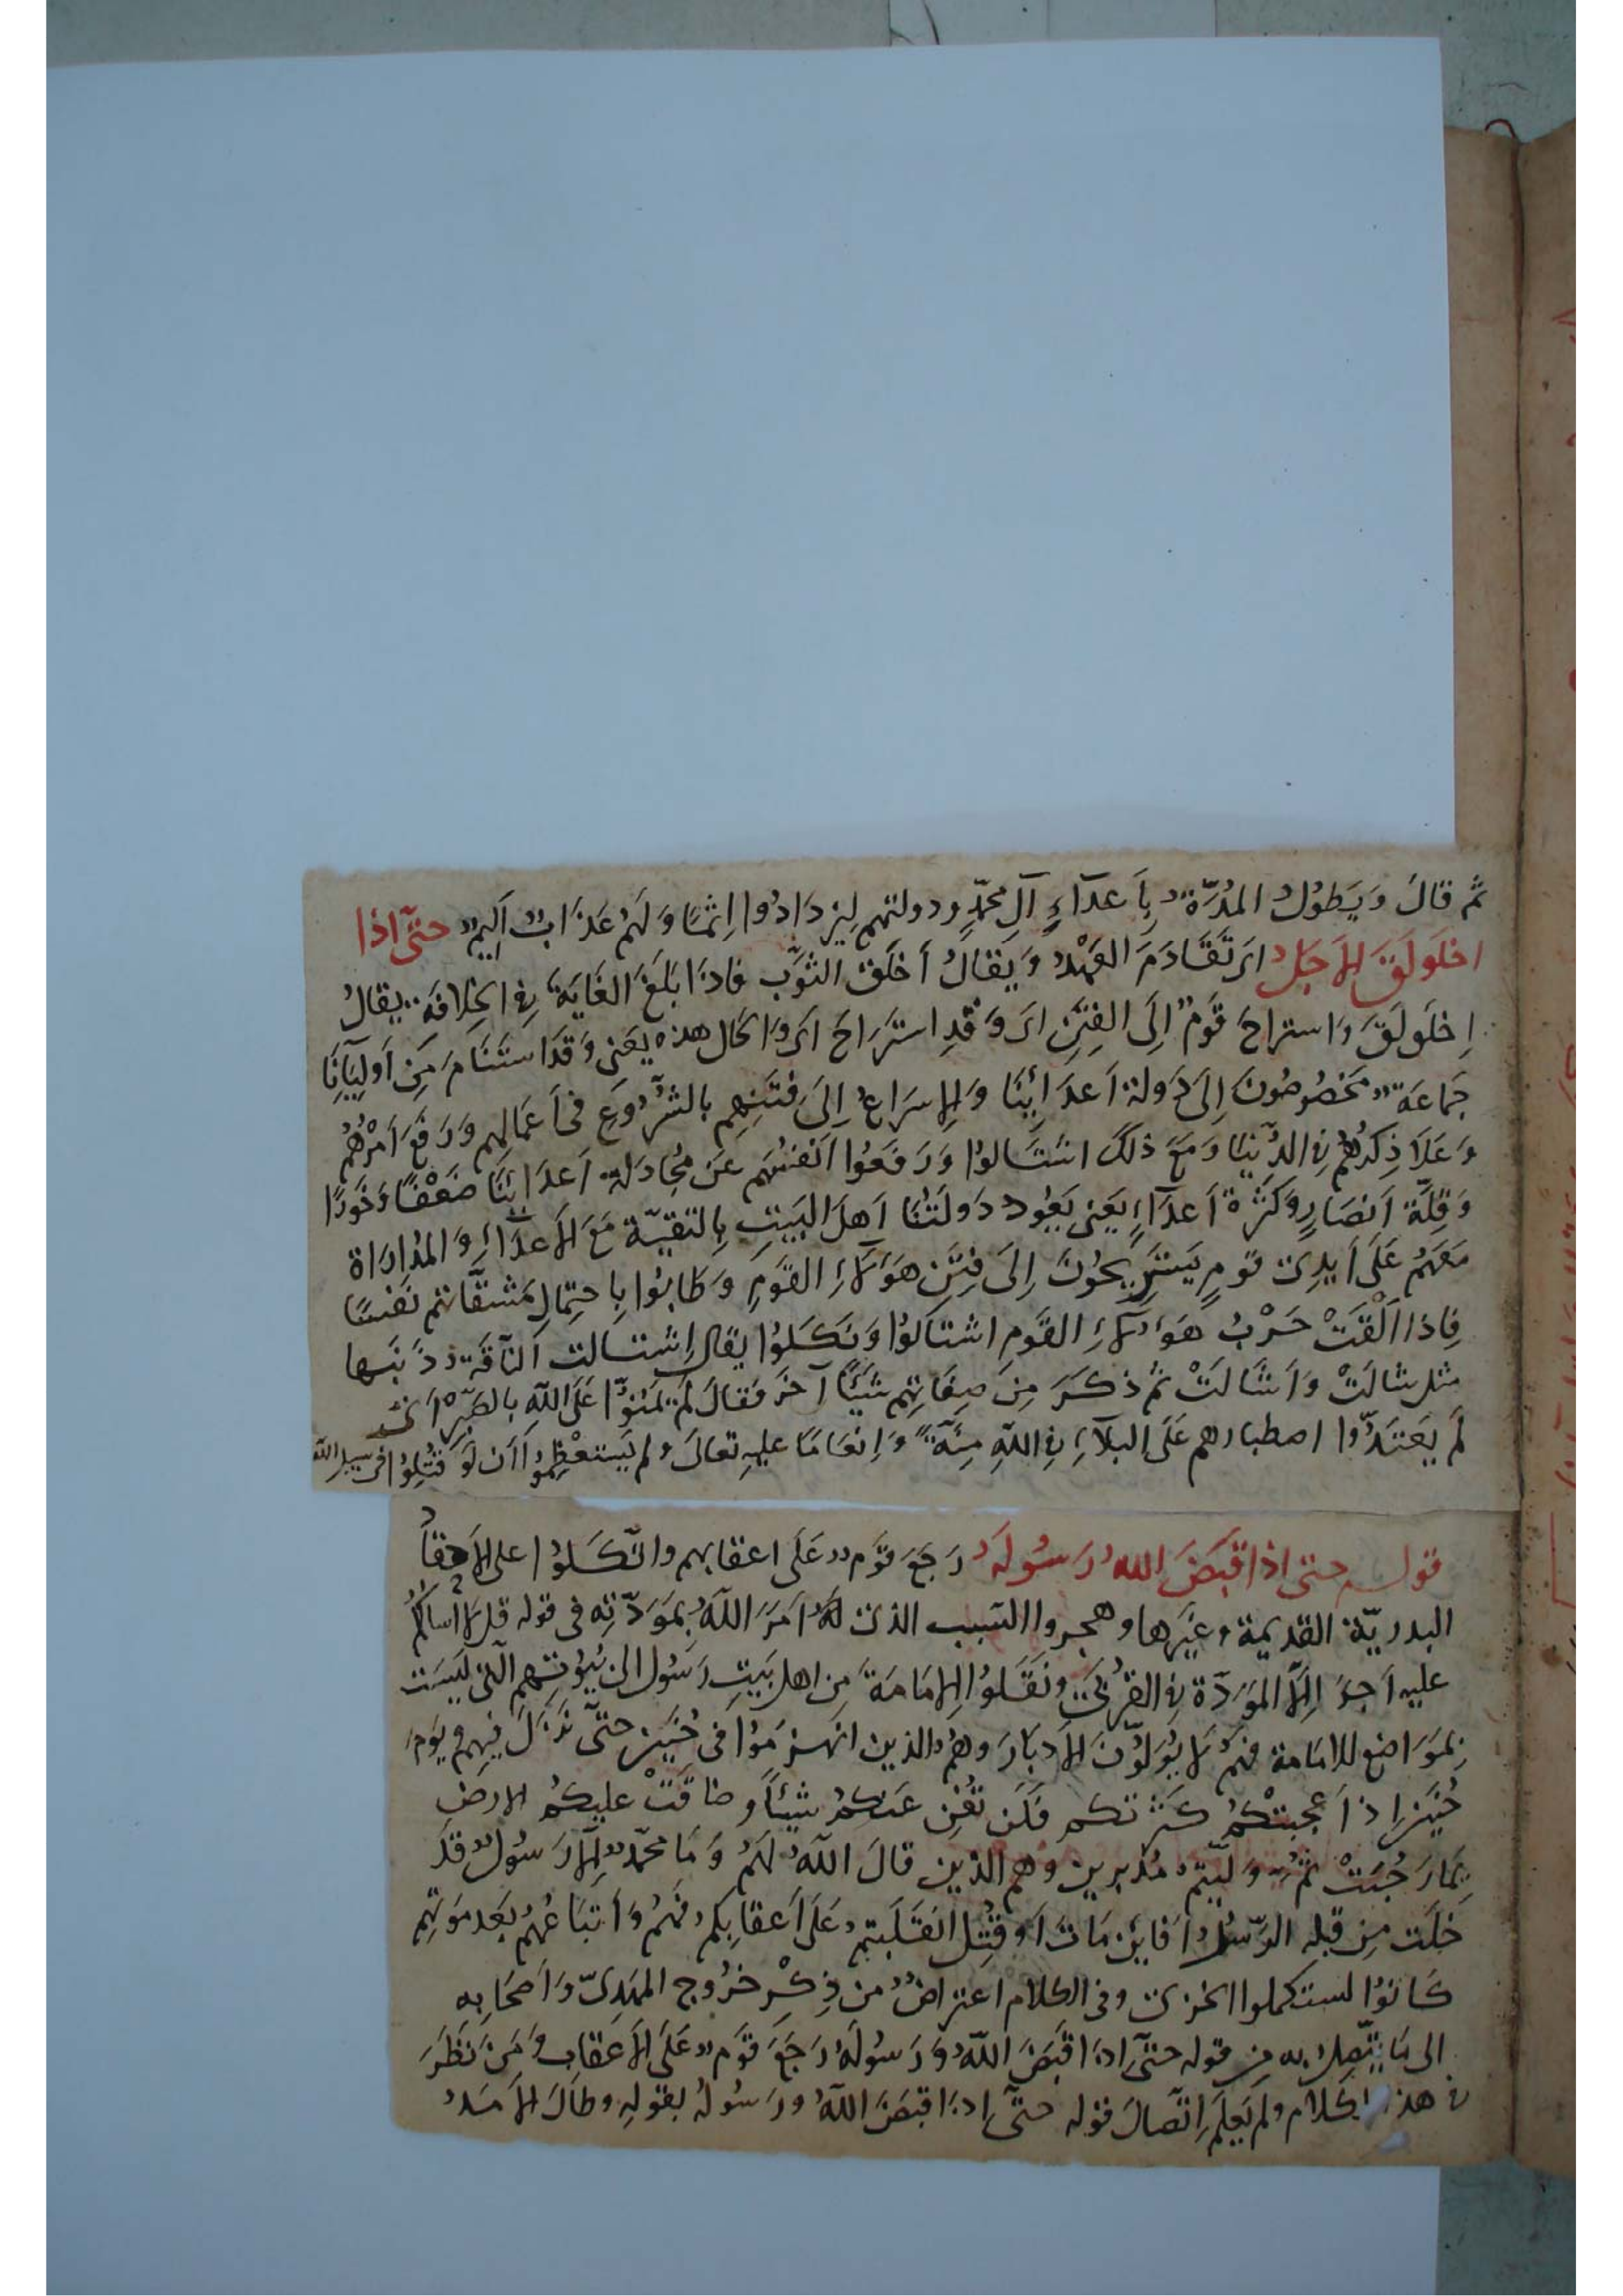 ثم قالَ وَيَطُولُ المُدَّةُ بِأَعدَآءِ آلِ محمّدٍ ودولتهم لِيَزدَادُوا اِثمًا وَلَهُم عَذَابٌ اَلِيمٌ حتّى اذا
اخلَولَقَ الاَجَلُ اى تَقَادَمَ العَهْدُ وَيُقالُ أخلَقَ الثَّوب فاذَا بَلَغَ الغَايَةَ فى الخلافة يقالُ
اِخلَولَقَ وَاستراحَ قَومٌ اِلَى الفِتَنِ اى وَقَدِ استَرَاحَ اى وَالحَال هذه يَعنى وَقَدَاستَنَامَ مِن اَولِيَآئِنَا
جَمَاعَةٌ مَخصُوصُونَ اِلى دَولة اَعدَائِنَا وَالاِسرَاعُ اِلَى فِتنَتِهِم بِالشُّرُوعِ فى اَعمَالِهم وَرَفعَ اَمْرُهُم
وَعَلَا ذِكرُهُم فى الدُّنيَا وَمَعَ ذلكَ اشتَالوُا وَرَفَعُوا اَنفسُهَم عَن مُجَادَلة اَعدَائِنَا ضَعْفًا وَخَوَرًا
وَقِلَّة اَنصَارٍ وَكَثرَة اَعدَآءٍ يَعنى يَعُود دَولَتُنَا اَهلَ البَيتِ بِالتَقيّة مَعَ الاَعدَآءِ وَالمُدارَاة
مَعَهُم عَلَى اَيدِى قومٍ يَستَرِيحُونَ اِلَى فِتَنِ هَؤلَاءِ القَومِ وَطَابُوا بِاحتِمَالِ مَشَقَّاتهم نَفسًا
فاِذا اَلْقَتْ حَرْبُ هَؤلآءِ القَومِ اشتَالوُا وَنَكَلوُا يقال اِشتالت النّاقَة ذَنَبها
مثل شالَتْ وَاَشَالَتْ ثم ذكَرَ مِن صِفَاتِهم شَيئًا آخَرَ فقالَ لَم يَمُنّوُا عَلَى اللهِ بالصَّبْرِ اى
لَم يَعتَدّوا اصطبارهم عَلَى البَلآءِ فى اللهِ مِنّةً وَاِنعَامًا عليهِ تعالَى ولم يَستعظِمُوا اَن لَو قُتِلُوا فى سبيل الله
قوله حتى اذا قَبَضَ اللهُ رَسُولَهُ رَجَعَ قَومٌ عَلَى اعقابهم واتّكَلوُا على الاَحقاد
البدريّة القديمة وغيرها وهجروا السّبب الذى اَمَرَ اللهُ بمَوَدّتِه فى قوله قل لا أسالكُم
عليه اَجرًا اِلَّا المَوَدّةَ فى القربىَ ونَقَلوُا الاِمَامَةَ مِن اهل بَيتِ رَسُول الى بُيُوتهم الّتى لَيسَت
بمَوَاضع للامَامة فهُم لا يُوَلّونَ الاَدبَارَ وهُم الذين انهزَموُا فى حُنَين حتّى نَزَلَ فيهم ويَومَ
حُنَينٍ اِذ اَعجبتْكُم كثرَتكم فَلَن تُغنِ عَنكُم شيئًا وضاقَتْ عليكُم الارض
بِمَا رَحُبَتْ ثمّ وَلّيتم مُدبرين وهم الذين قالَ اللهُ لهُم وَمَا محمّدٌ اِلَّا رَسُولٌ قَد
خَلَت مِن قبله الرّسُلُ اَفَاِين مَاتَ اَو قُتِل انقَلَبتم عَلَى اَعقابكم فهُم وَاَتبَاعهُم بَعَد مَوتِهم
كَانوُا استكملوا الخزى وفى الكلام اعتراضٌ من ذِكْر خرُوج المهَدىّ وَاَصحَابه
الى مَا يَتّصِلُ به مِن قوله حتّى اِذَا قَبَضَ اللهُ وَرَسُولَهُ رَجَعَ قَومٌ عَلَى الاَعقابِ وَمَن نَظَرَ
فى هذا الكلامِ ولم يَعلَم اِتّصالَ قوله حتّى اِذَا قَبَضَ اللهُ ورَسُولهُ بقولهِ وطالَ الاَمَدُ